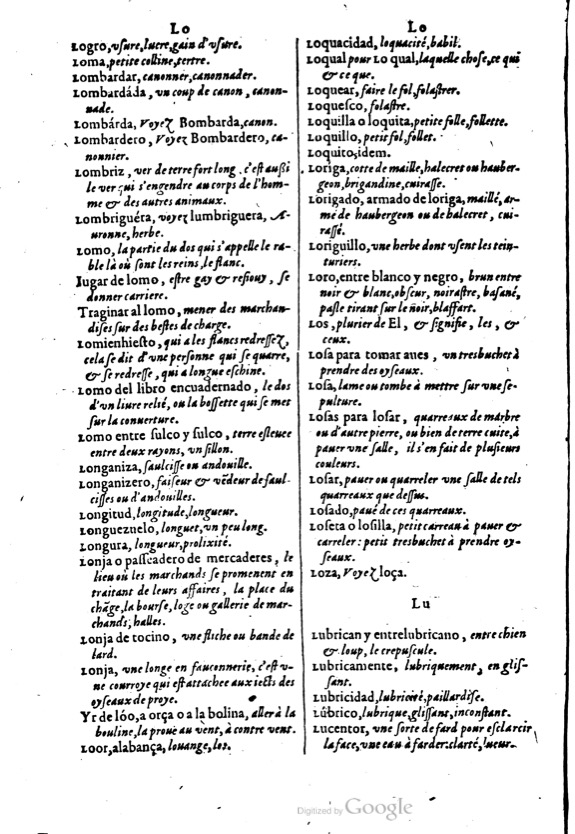 Lo
Logro, vsure, lucre, gain d'vsure.
Loma, petite colline, tertre.
Lombardar, canonner, canonnader.
Lombardáda, vn coup de canon, canon-
nade.
Lombárda, Voyez Bombarda, canon.
Lombardero, Voyez Bombardero, ca-
nonnier.
Lombriz, ver de terre fort long, c'est aussi
le ver qui s'engendre au corps de l'hom-
me & des autres animaux.
Lombriguéra, voyez lumbriguera, Au-
uronne, herbe.
Lomo, la partie du dos qui s'appelle le ra-
ble là où sont les reins, le flanc.
Iugar de lomo, estre gay & resiouy, se
donner carriere.
Traginar al lomo, mener des marchan-
dises sur des bestes de charge.
Lomienhiesto, qui a les flancs redressez,
cela se dit d'vne personne qui se quarre,
& se redresse, qui a longue eschine.
Lomo del libro encuadernado, le dos
d'vn liure relié, ou la bossette qui se met
sur la conuerture.
Lomo entre sulco y sulco, terre esleuee
entre deux rayons, vn sillon.
Longaniza, saulcisse ou andouille.
Longanizero, faiseur & vēdeur de saul-
cisses ou d'andouilles.
Longitud, longitude, longueur.
Longuezuelo, longuet, vn peu long.
Longura, longueur, prolixité.
Lonja o passeadero de mercaderes, le
lieu où les marchands se promenent en
traitant de leurs affaires, la place du
chāge, la bourse, loge ou gallerie de mar-
chands, halles.
Lonja de tocino, vne fliche ou bande de
lard.
Lonja, vne longe en fauconnerie, c'est v-
ne courroye qui est attachee aux iects des
oyseaux de proye.
Yr de lóo, a orça o a la bolina, aller à la
bouline, la prouë au vent, à contre vent.
Loor, alabança, louange, los.
Lo
Loquacidad, loquacité, babil.
Loqual pour Lo qual, laquelle chose, ce qui
& ce que.
Loquear, faire le fol, folastrer.
Loquesco, folastre.
Loquilla o loquita, petite folle, follette.
Loquillo, petit fol, follet.
Loquito, idem.
Loriga, cotte de maille, halecret ou hauber-
geon, brigandine, cuirasse.
Lorigado, armado de loriga, maillé, ar-
mé de haubergeon ou de halecret, cui-
rassé.
Loriguillo, vne herbe dont vsent les tein-
turiers.
Loro, entre blanco y negro, brun entre
noir & blanc, obscur, noirastre, basané,
pasle tirant sur le noir, blaffart.
Los, plurier de El, & signifie, les, &
ceux.
Losa para tomar aues, vn tresbuchet à
prendre des oyseaux.
Losa, lame ou tombe à mettre sur vne se-
pulture.
Losas para losar, quarreaux de marbre
ou d'autre pierre, ou bien de terre cuite, à
pauer vne salle, il s'en fait de plusieurs
couleurs.
Losar, pauer ou quarreler vne salle de tels
quarreaux que dessus.
Losado, paué de ces quarreaux.
Loseta o losilla, petit carreau à pauer &
carreler: petit tresbuchet à prendre oy-
seaux.
Loza, Voyez loça.
Lu
Lubrican y entrelubricano, entre chien
& loup, le crepuscule.
Lubricamente, lubriquement, en glis-
sant.
Lubricidad, lubricité, paillardise.
Lúbrico, lubrique, glissant, inconstant.
Lucentor, vne sorte de fard pour esclarcir
la face, vne eau à farder: clarté, lueur.
Digitized by Google